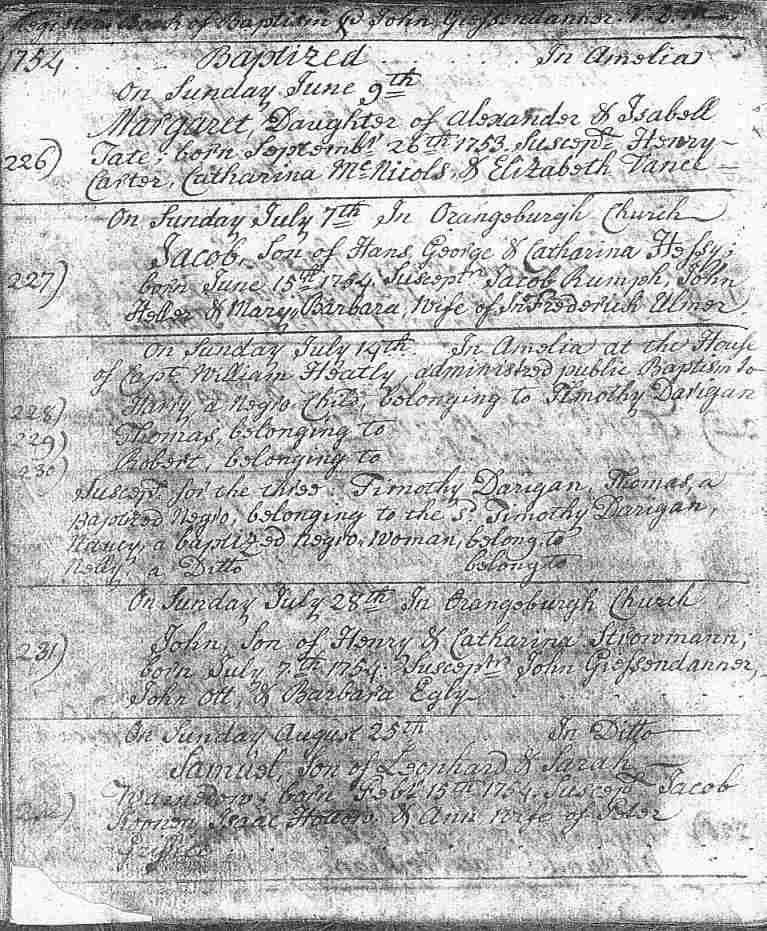 Register Book of Baptism John Giessendanner. V. D. M.
1754 . . . . Baptized . . . . . . . In Amelia
On Sunday June 9th
Margaret, Daughter of Alexander & Isabell
226) Tate; born Septembr. 26th 1753. Suscept. Henry
Carter, Catharina McNicols, & Elizabeth Vance
On Sunday July 7th In Orangeburgh Church
Jacob, Son of Hans George & Catharina Hessy;
227) born June 15th 1754. Susceptrs Jacob Rumph, John
Heller & Mary Barbara, Wife of Jn Frederick Ulmer.
On Sunday July 14th. In Amelia at the House
of Capt. William Heatly, administred public Baptism to
228) Harry, a Negro Child, belonging to Timothy Darigan
229) Thomas, belonging to
230) Robert, belonging to
Suscept. for the three: Timothy Darigan, Thomas, a
Baptized Negro, belonging to the Sd. Timothy Darigan,
Nancy, a baptized Negro Woman, belong. to
Nelly, a Ditto belong. to
On Sunday July 28th In Orangeburgh Church
John, Son of Henry & Catharina Strowmann;
231) born July 7th 1754. Susceptrs John Giessendanner,
John Ott, & Barbara Egly
On Sunday August 25th In Ditto
Samuel, Son of Leonhard & Sarah
born Febr. 15th 1754. Suscept. Jacob
Isaac & Ann Wife of Peter